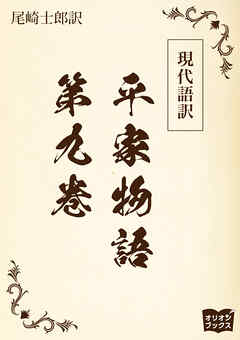 尾崎士郎訳
現代語訳
平家物語
第九巻
オリオン
ブックス